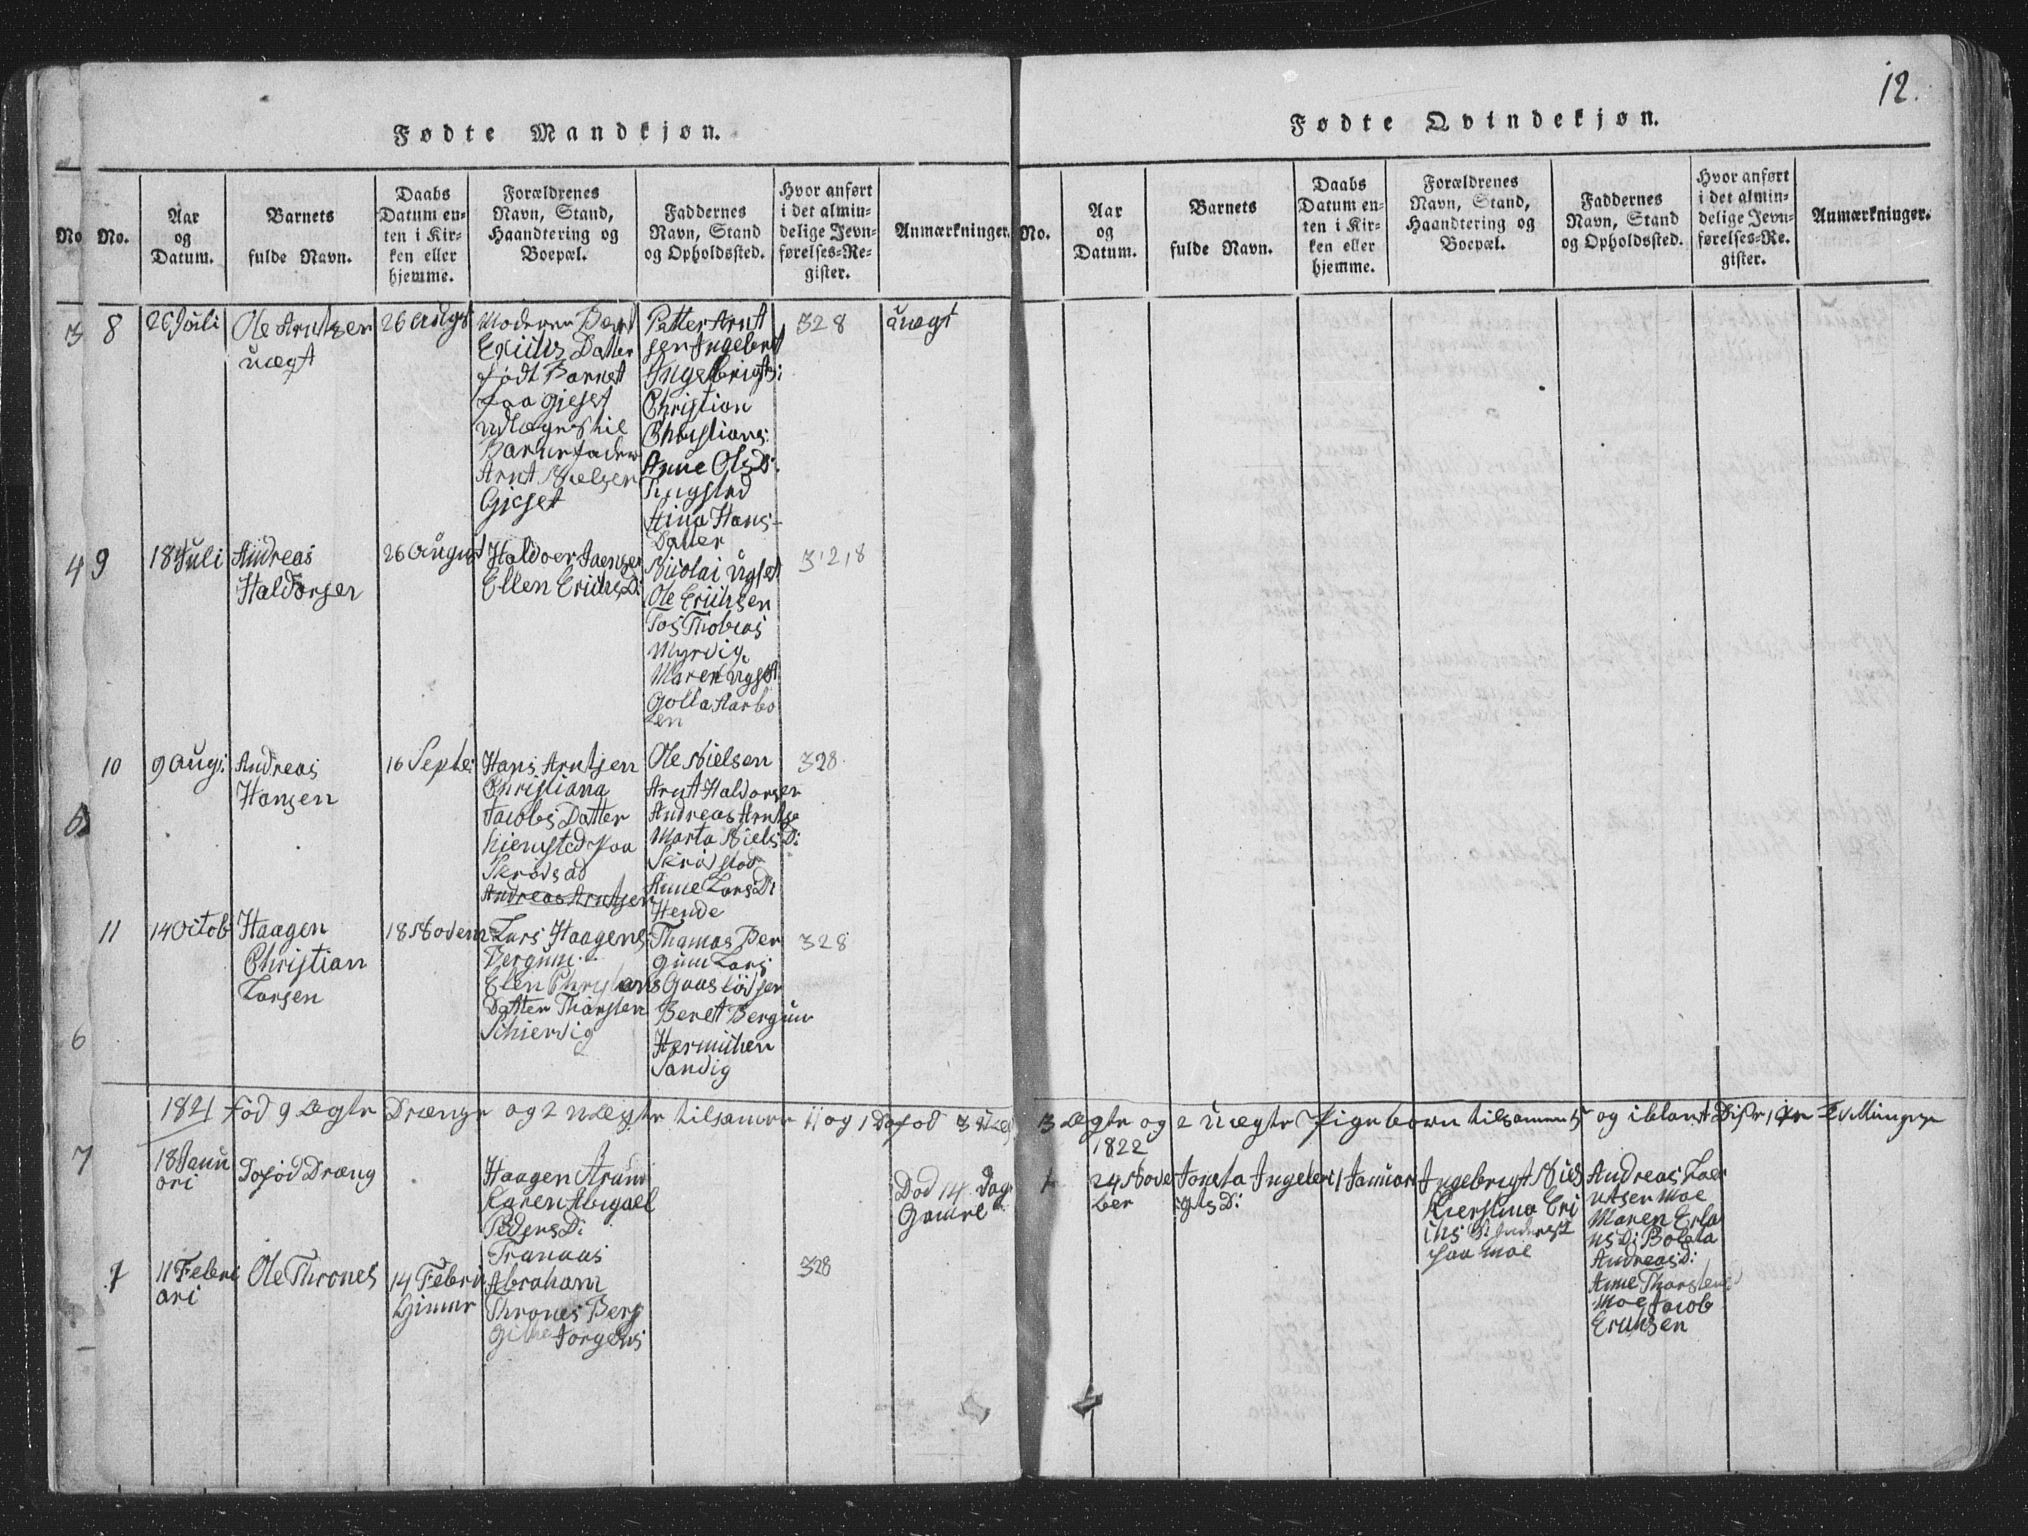 12.
Fødte Mandkjøn.
No.
Aar
og
Datum.
Barnets
fulde Navn.
Daabs
Datum en-
ten i Kir-
ken eller
hjemme.
Forældrenes
Navn, Stand,
Haandtering og
Boepæl.
Faddernes
Navn, Stand
og Opholdssted.
Hvor anført
i det almin-
delige Jevn-
førelses-Re-
gister.
Anmærkninger.
8
26 Juli
Ole Arntzen
uægt
26 Augst
Moderen Beret
Erichs Datter
født Barnet
paa Gjeset
udlæges til
Barnefader
Arnt Nielsen
Gjeset
Petter Arnt
sen Ingebret
Ingebrigts:
Christian
Christians:
Anne Ols D:
Ringstad
Stina Hans-
Datter
328
uægt
9
18 Juli
Andreas
Haldorsen
26 August
Haldoer Jaensen
Ellen Erichs D:
Nicolai Ugset
Ole Erichsen
Jos Thobias
Myrvig,
Maren Ugset
Golla Aarbo
en
328
10
9 Aug:
Andreas
Hansen
16 Septe:
Hans Arntsen
Christiana
Jacobs Datter
tienisted paa
Skrødstad
Andreas Arntsen
Ole Nielsen
Arnt Haldorsen
Andreas Arntse
Marta Niels D:
Skrødstad
Anne Lars D:
Hende
328
11
14 Octob
Haagen
Christian
Larsen
18 Novem
Lars Haagens:
Bergum
Elen Christians
Datter Thorsten
Schiervig
Thomas Ber
gum Lars
Gaaslødsen
Beret Bergum
Hermichen
Sandig
328
1821 Fød 9 Ægte Drænge og 2 uægte tilsamen 11 og 1 Døfød
18 Janu
ari
Døfød Dræng
Haagen Strøm
Karen Abigael
Peders D:
Tranaas
Død 14 Dage
Gamel
1
11 Febru
ari
Ole Thrones
14 Febru
hjemme
Abraham
Thrones Berg
Jorgens
328
3
4
6
7
Fødte Qvindekjøn.
No.
Aar
og
Datum.
Barnets
fulde Navn.
Daabs
Datum en-
ten i Kir-
ken eller
hjemme.
Forældrenes
Navn, Stand,
Haandtering og
Boepæl.
Faddernes
Navn, Stand
og Opholdssted.
Hvor anført
i det almin-
delige Jevn-
førelses-Re-
gister.
Anmærkninger.
3 Ægte og 2 Uægte Pigebørn tilsamen 5 og iblant Disse 1 par Tvillinger
1822
1
24 Nove
ber
Joneta Ingebri
gts D:
1 Januari
Ingebrigt Niels
Kierstina Eri
chs D: Inderst
paa Moe
Andreas Lau
ritsen Moe
Maren Erla
nds D: Boleta
Andreas D:
Anne Thorstens
Moe Jacob
Erichsen